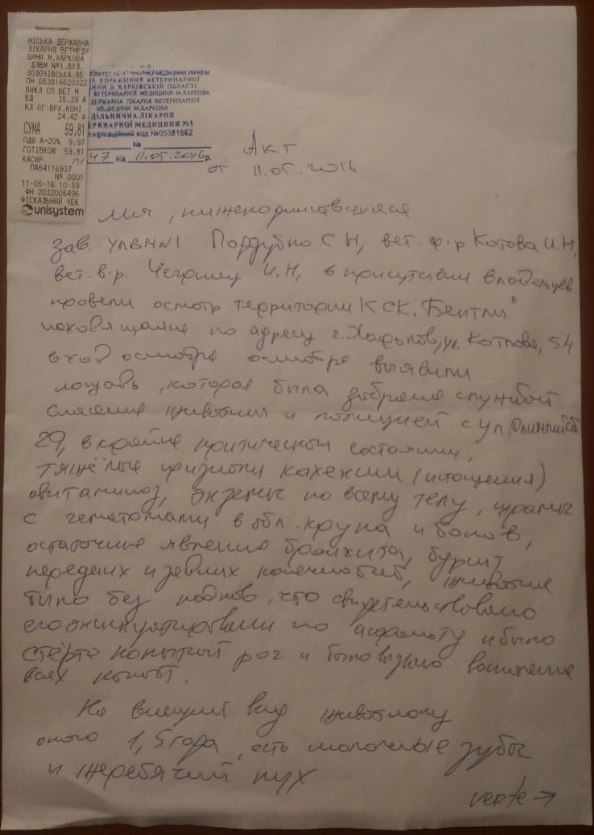 МІСЬКА ДЕРЖАВНА
ЛІКАРНЯ ВЕТМЕДИ
ЦИНИ М.ХАРКОВА
ДЛВМ №1,ВУЛ.
ЗОЛОЧІВСЬКА,8Б
ПН 053816620322
ВИКЛ СП ВЕТ М
ЕД 35,39 А
КЛ ОГ-ВРХ,КОНІ
24,42 А
СУМА 59,81
ПДВ А=20% 9,97
ГОТІВКОЮ 59,81
КАСИР /1/
ПА64116937
№ 0001
11-05-16 10:59
ФН 2032006496
ФІСКАЛЬНИЙ ЧЕК
unisystem
ВЕТЕРИНАРНОЇ МЕДИЦИНИ УКРАЇНИ
УПРАВЛІННЯ ВЕТЕРИНАРНОЇ
В ХАРКІВСЬКІЙ ОБЛАСТІ
ВЕТЕРИНАРНОЇ МЕДИЦИНИ М.ХАРКОВА
ДЕРЖАВНА ЛІКАРНЯ ВЕТЕРИНАРНОЇ
МЕДИЦИНИ М.ХАРКОВА
ДІЛЬНИЧНА ЛІКАРНЯ
МЕДИЦИНИ №1
код №05381662
№
47 від 11.05.2016р.
Акт
от 11.05.2016
Мы, нижеподписавшиеся
зав. УЛВМ№1 С Н, вет. ф-р Котова И.Н,
вет. в-р. И.Н, в присутствии владельцев
провели осмотр территории КСК "Бентли"
находящаяся по адресу г. Харьков, ул. Котлова, 54
в ход осмотра осмотра выявили
лощадь, которая была забрана службой
спасение животных и полицией с ул. Олимпийской
29, в крайне критическом состоянии,
тяжёлые признаки кахексии (истощения)
авитаминоз, экземы по всему телу,
с гематомами в обл. крупа и боков,
остаточные явление бронхита, бурсит
передних и задних конечностей, животное
было без подков, что свидетельствовало
его эксплуатировали по асфальту и было
стёрто копытный рог и было видно воспаление
всех копыт.
На внешний вид животному
около 1,5 года, есть молочные зубы
и жеребячий пух
verte →